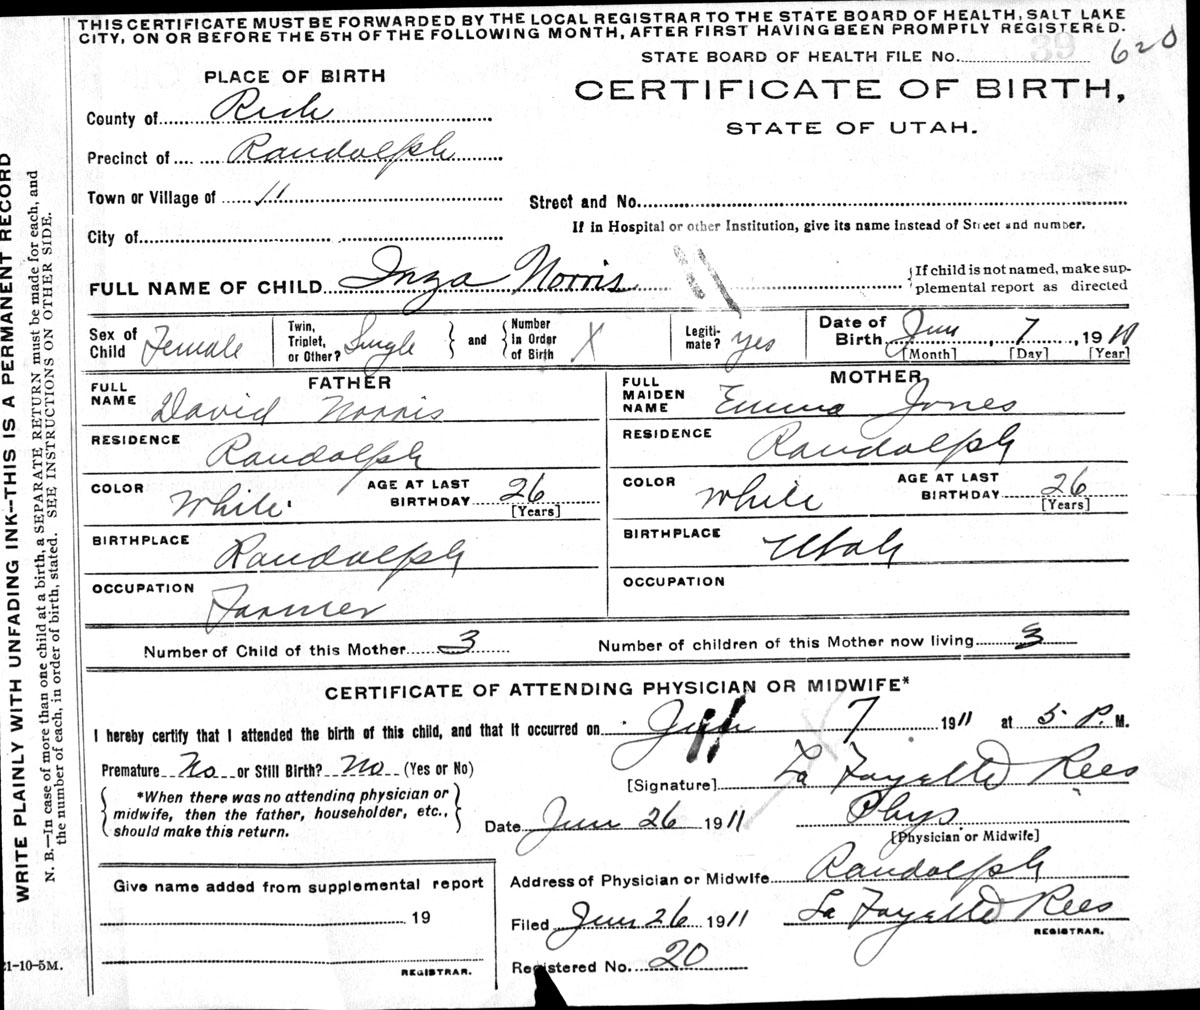 THIS CERTIFICATE MUST BE FORWARDED BY THE LOCAL REGISTRAR TO THE STATE BOARD OF HEALTH, SALT LAKE
CITY, ON OR BEFORE THE 5TH OF THE FOLLOWING MONTH, AFTER FIRST HAVING BEEN PROMPTLY REGISTERED.
STATE BOARD OF HEALTH FILE No. 39 620
PLACE OF BIRTH
CERTIFICATE OF BIRTH,
STATE OF UTAH.
County of Rich
Precinct of Randolph
Town or Village of "
Street and No.
City of
If in Hospital or other Institution, give its name instead of Street and number.
FULL NAME OF CHILD Inza Norris
{If child is not named, make sup-
plemental report as directed
Sex of Child Female
Twin, Triplet, or Other? Single
} and {
Number in Order of Birth X
Legiti-mate? Yes
Date of Birth 7, 19
[Month] [Day] [Year]
FATHER
MOTHER
FULL NAME David Norris
FULL MAIDEN NAME Emma Jones
RESIDENCE Randolph
RESIDENCE Randolph
COLOR White
AGE AT LAST BIRTHDAY 26
[Years]
COLOR White
AGE AT LAST BIRTHDAY 26
[Years]
BIRTHPLACE Randolph
BIRTHPLACE Utah
OCCUPATION Farmer
OCCUPATION
Number of Child of this Mother 3
Number of children of this Mother now living 3
CERTIFICATE OF ATTENDING PHYSICIAN OR MIDWIFE*
I hereby certify that I attended the birth of this child, and that it occurred on 7 1911 at 5 P. M.
Premature No or Still Birth? No (Yes or No)
[Signature] La Fayette Rees
{ *When there was no attending physician or
midwife, then the father, householder, etc.,
should make this return. }
Date 26 1911
Phys.
[Physician or Midwife]
Give name added from supplemental report
19
REGISTRAR.
Address of Physician or Midwife Randolph
Filed 26 1911 La Fayette Rees
REGISTRAR.
Registered No. 20
21-10-5M.
WRITE PLAINLY WITH UNFADING INK--THIS IS A PERMANENT RECORD
N. B.—In case of more than one child at a birth, a SEPARATE RETURN must be made for each, and
the number of each, in order of birth, stated. SEE INSTRUCTIONS ON OTHER SIDE.